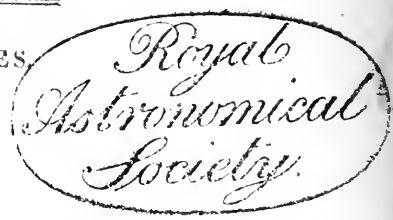 ES.
Royal
Astronomical
Society.